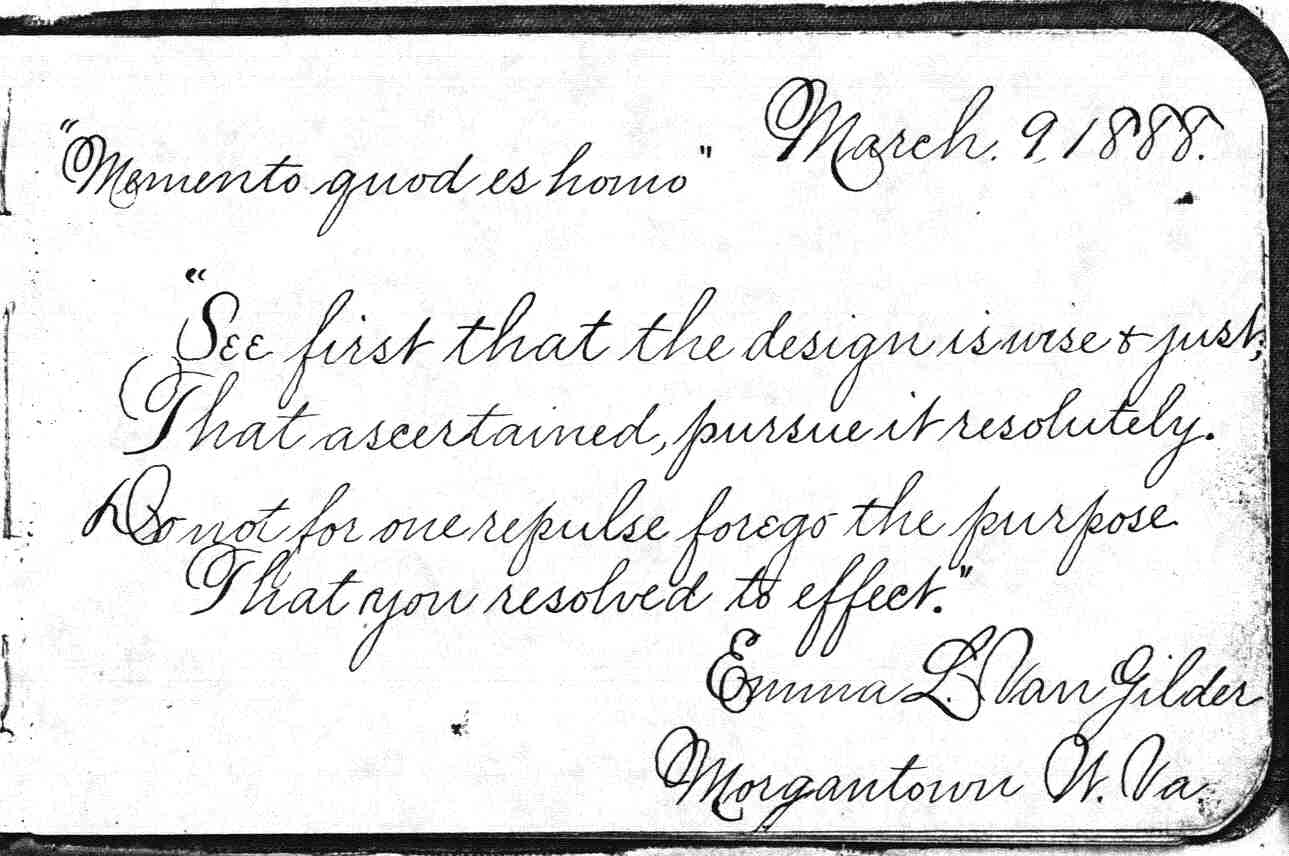 March. 9, 1888.
"Memento quod es homo"
"See first that the design is wise & just;
That ascertained, pursue it resolutely.
Do not for one repulse forego the purpose
That you resolved to effect."
Emma L. Van Gilder
Morgantown W. Va.